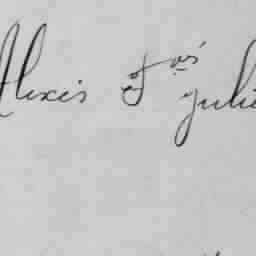 Alexis Fois Julie